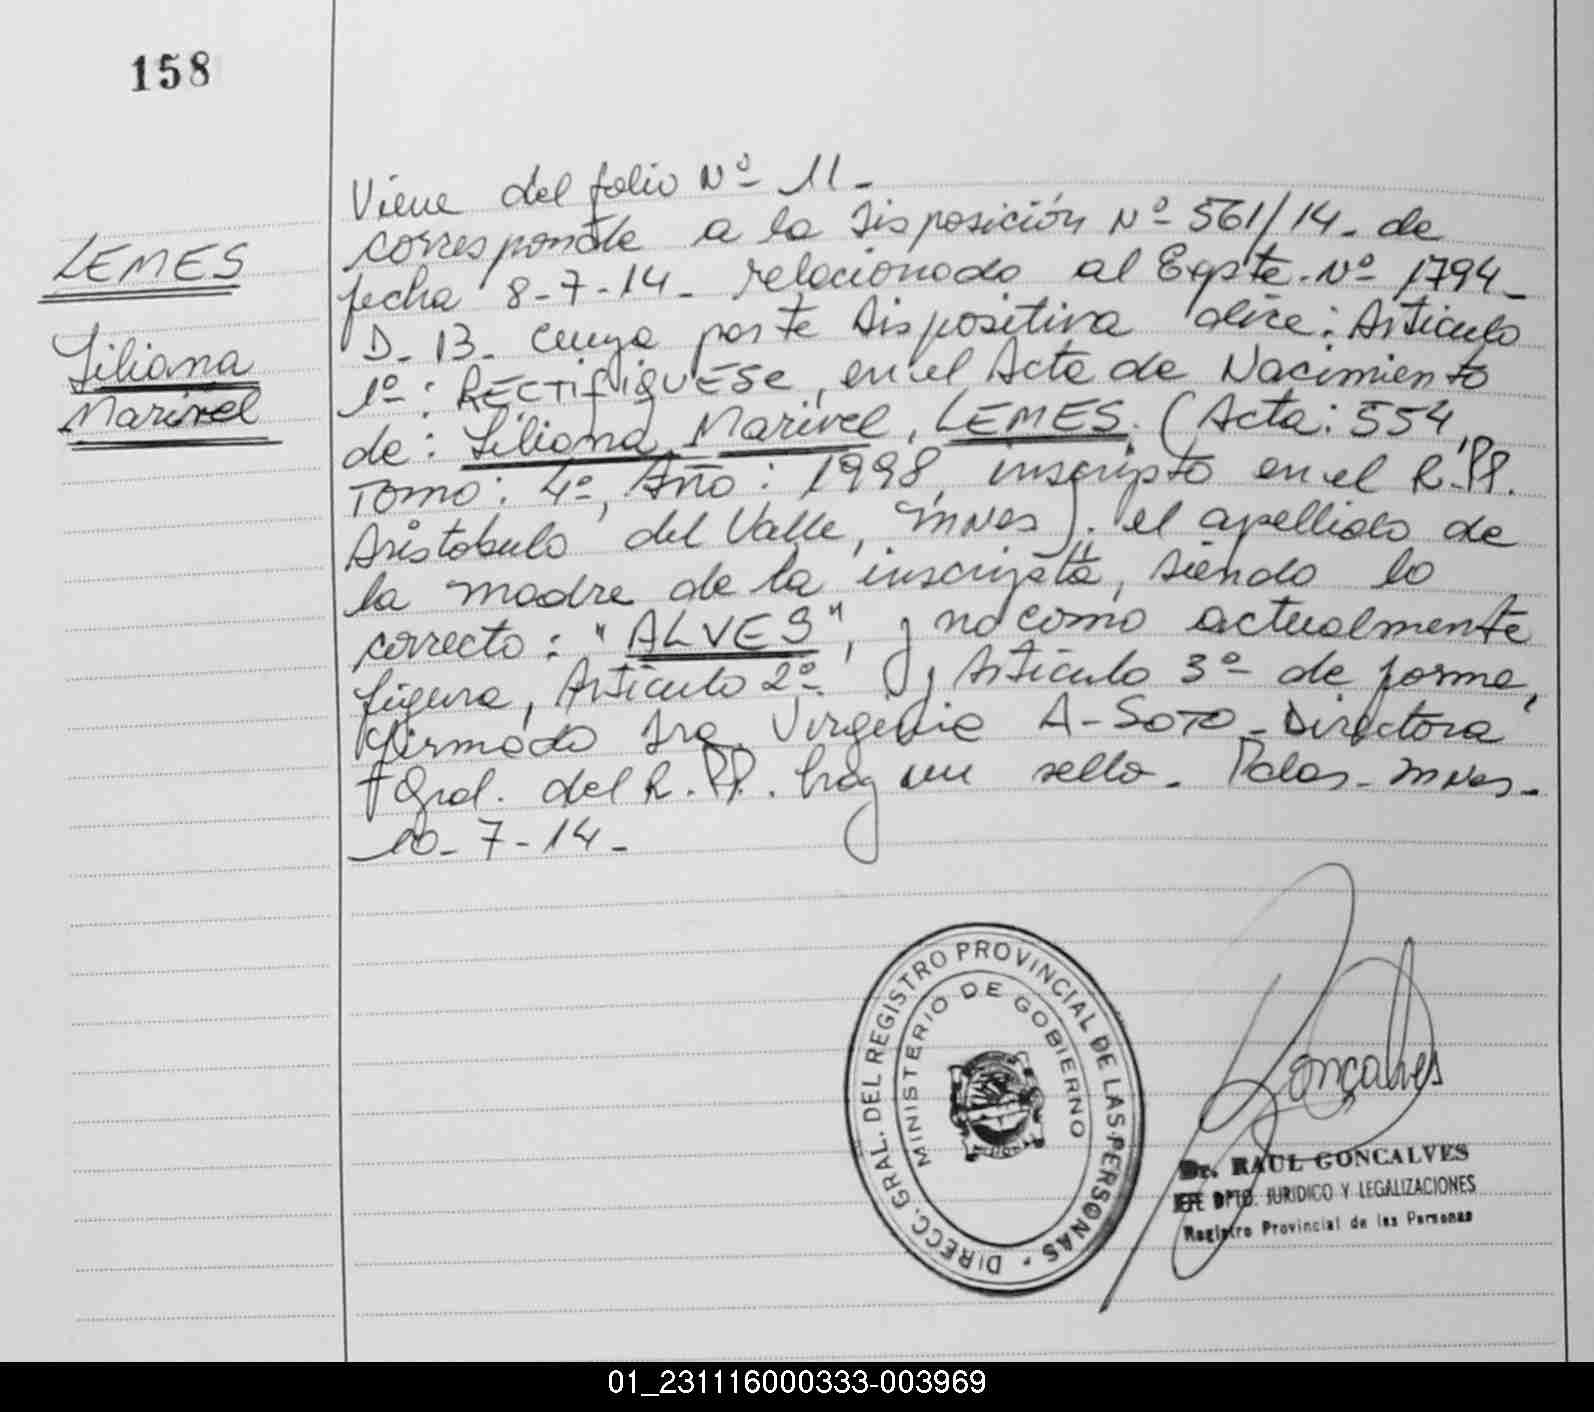 158
LEMES
Liliana
Marivel
Viene del folio Nº 11-
corresponde a la Disposición Nº 561/14- de
fecha 8-7-14- relacionado al Expte. Nº 1794-
D- 13- cuya parte dispositiva dice: Artículo
1º: RECTIFIQUESE, en el Acta de Nacimiento
de: Liliana Marivel, LEMES. (Acta: 554,
Tomo: 4º, Año: 1998, inscripto en el R.PP.
Aristobulo del Valle, Mnes). el apellido de
la madre de la inscripta, siendo lo
correcto: "ALVES", y no como actualmente
figura, Artículo 2º y Artículo 3º de forma,
firmado Sra. Virginia A- SOTO- Directora
Gral. del R.PP. hay un sello- Pdas- Mnes-
10-7-14-
DIRECC. GRAL. DEL REGISTRO PROVINCIAL DE LAS PERSONAS
MINISTERIO DE GOBIERNO
Gonçalves
Dr. RAUL GONCALVES
JEFE DPTO. JURIDICO Y LEGALIZACIONES
Registro Provincial de las Personas
01_231116000333-003969